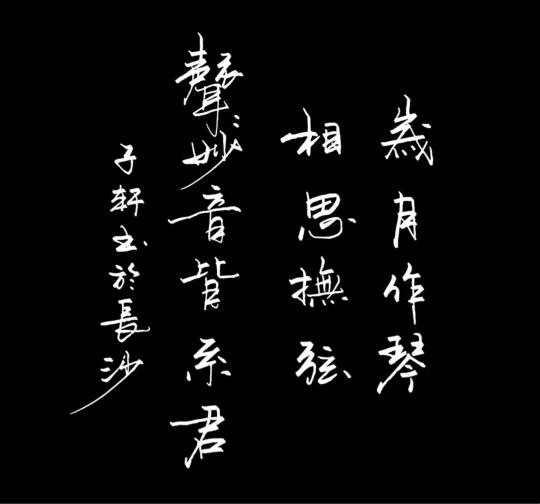 歲月作琴
相思撫弦
聲〻妙音皆系君
子軒书於長沙